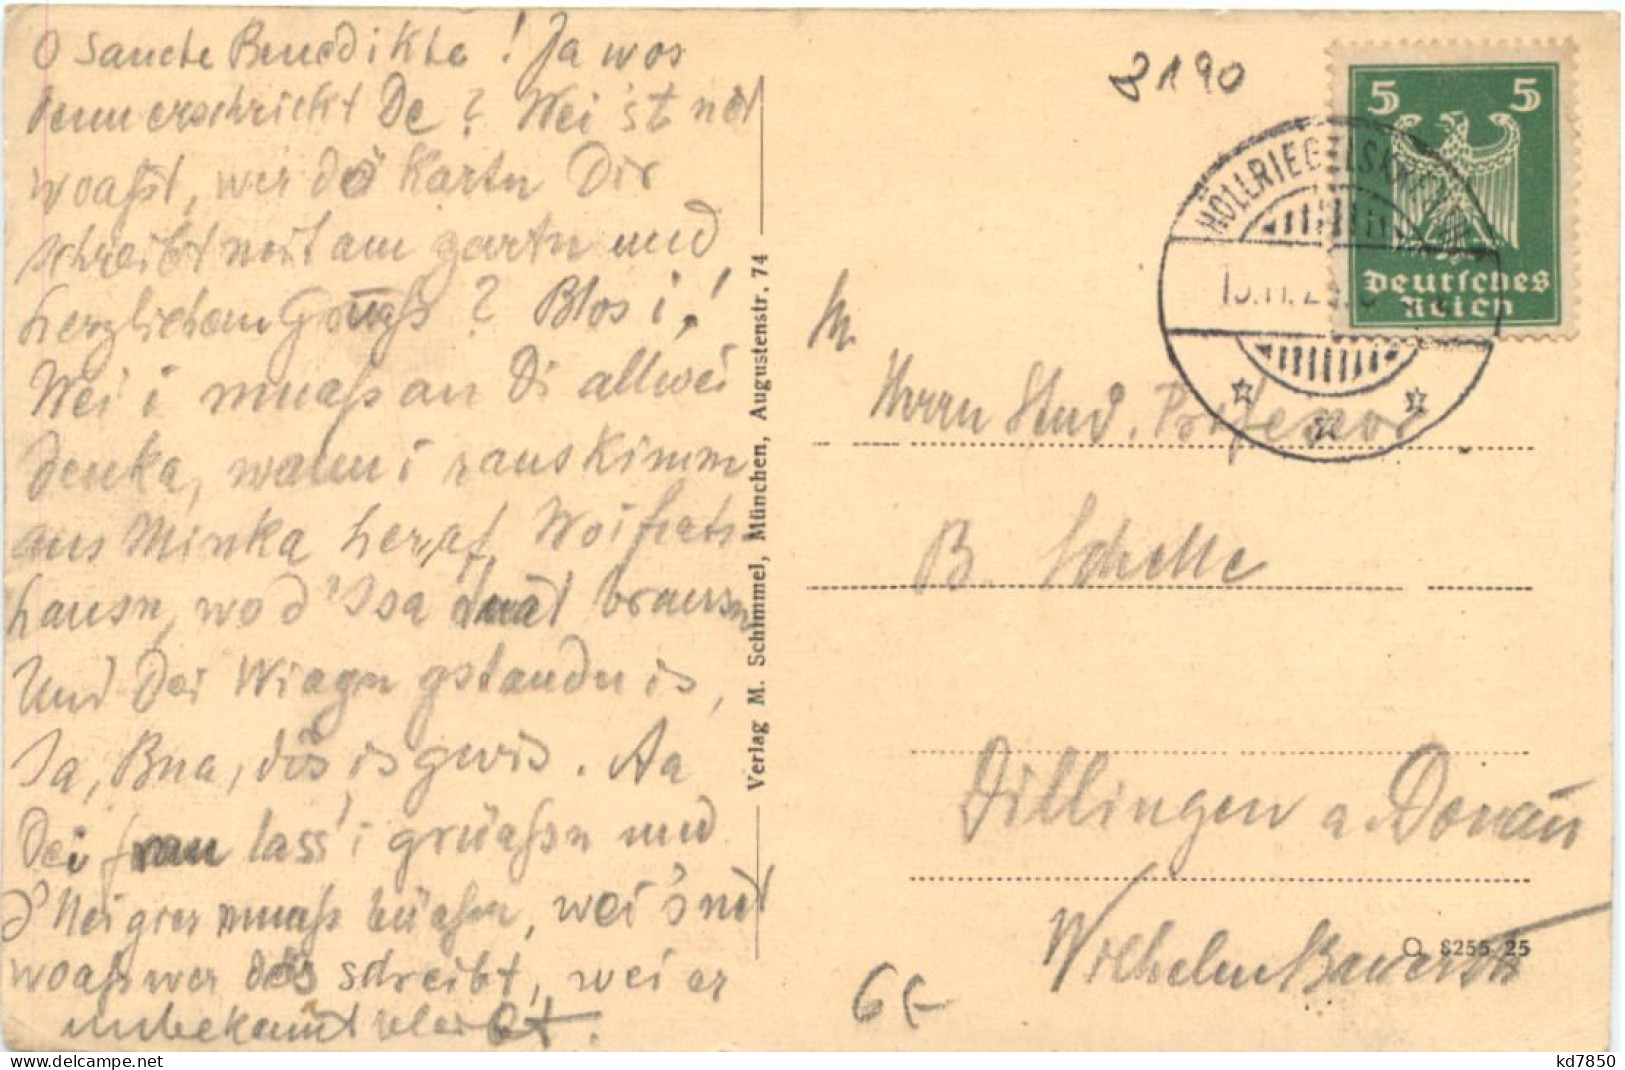 O Sancte Benedikte! Ja wos
denn erschrickt De? Wei'st net
woaßt, wer dö Kartn Dir
schreibt mit am zartn und
herzlichem Gruaß? Blos i!
Wei i muaß an Di allwei
denka, wann i rauskimm
aus Minka herauf, Woifrats-
hausn, wo d'Isa duat brausn
Und Dei Wiagn gstandn is,
Ja, Bua, dös is gwis. Aa
Dei Frau lass' i grüaßn und
d'Neigier muaß büaßn, wei's net
woaß wer dös schreibt, wei er
unbekannt bleibt.
Verlag M. Schimmel, München, Augustenstr. 74
8190
5 5
Deutsches
Reich
HÖLLRIEGELSKREUTH
Herrn Stud. Professor
B. Schelle
Dillingen a. Donau
Wilhelm Bauerstr
O 8255 25
6€
kd7850